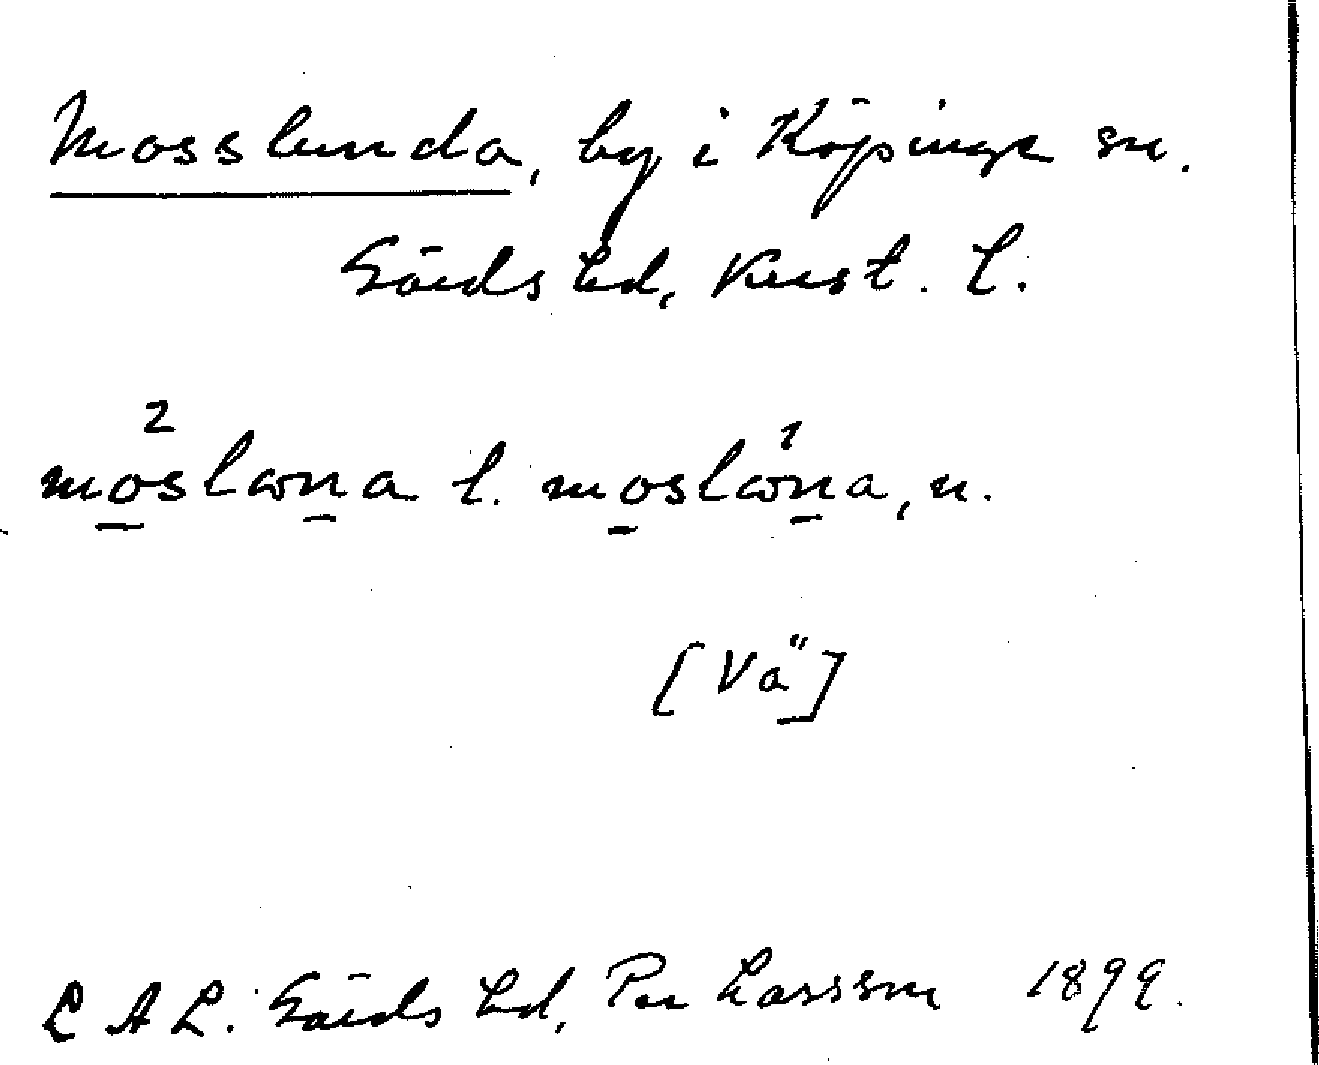 Mosslunda, by i Köpinge sn.
Gärds hd, Krist. l.
moslωna l. moslωna, n.
[Vä]
L A L. Gärds hd, Per Larsson 1899.